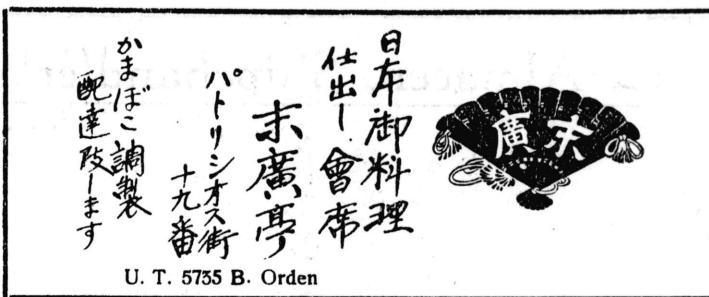 日本御料理
仕出し 會席
末廣亭
パトリシオス街
十九番
かまぼこ調製
配達致します
末廣
U. T. 5735 B. Orden